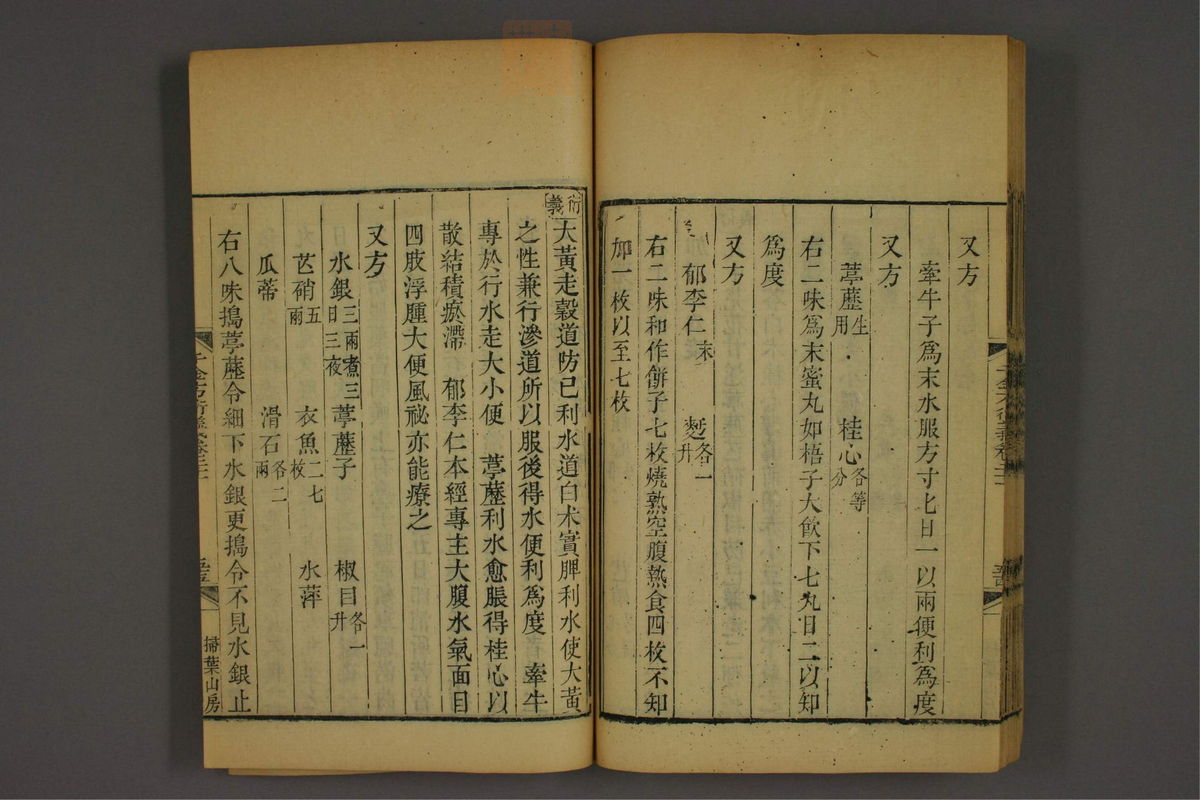 又方
牽牛子爲末水服方寸匕日一以兩便利爲度
又方
葶藶生用 桂心各等分
右二味爲末蜜丸如梧子大飲下七丸日二以知
爲度
又方
郁李仁末 麪各一升
右二味和作餅子七枚燒熟空腹熱食四枚不知
加一枚以至七枚
衍義大黃走穀道防己利水道白术實脾利水使大黃
之性兼行滲道所以服後得水便利爲度 牽牛
專於行水走大小便 葶藶利水愈脹得桂心以
散結積瘀滯 郁李仁本經專主大腹水氣面目
四肢浮腫大便風祕亦能療之
又方
水銀三兩煮三日三夜 葶藶子 椒目各一升
芒硝五兩 衣魚二七枚 水萍
瓜蒂 滑石各二兩
右八味搗葶藶令細下水銀更搗令不見水銀止
千金方衍義卷
掃葉山房